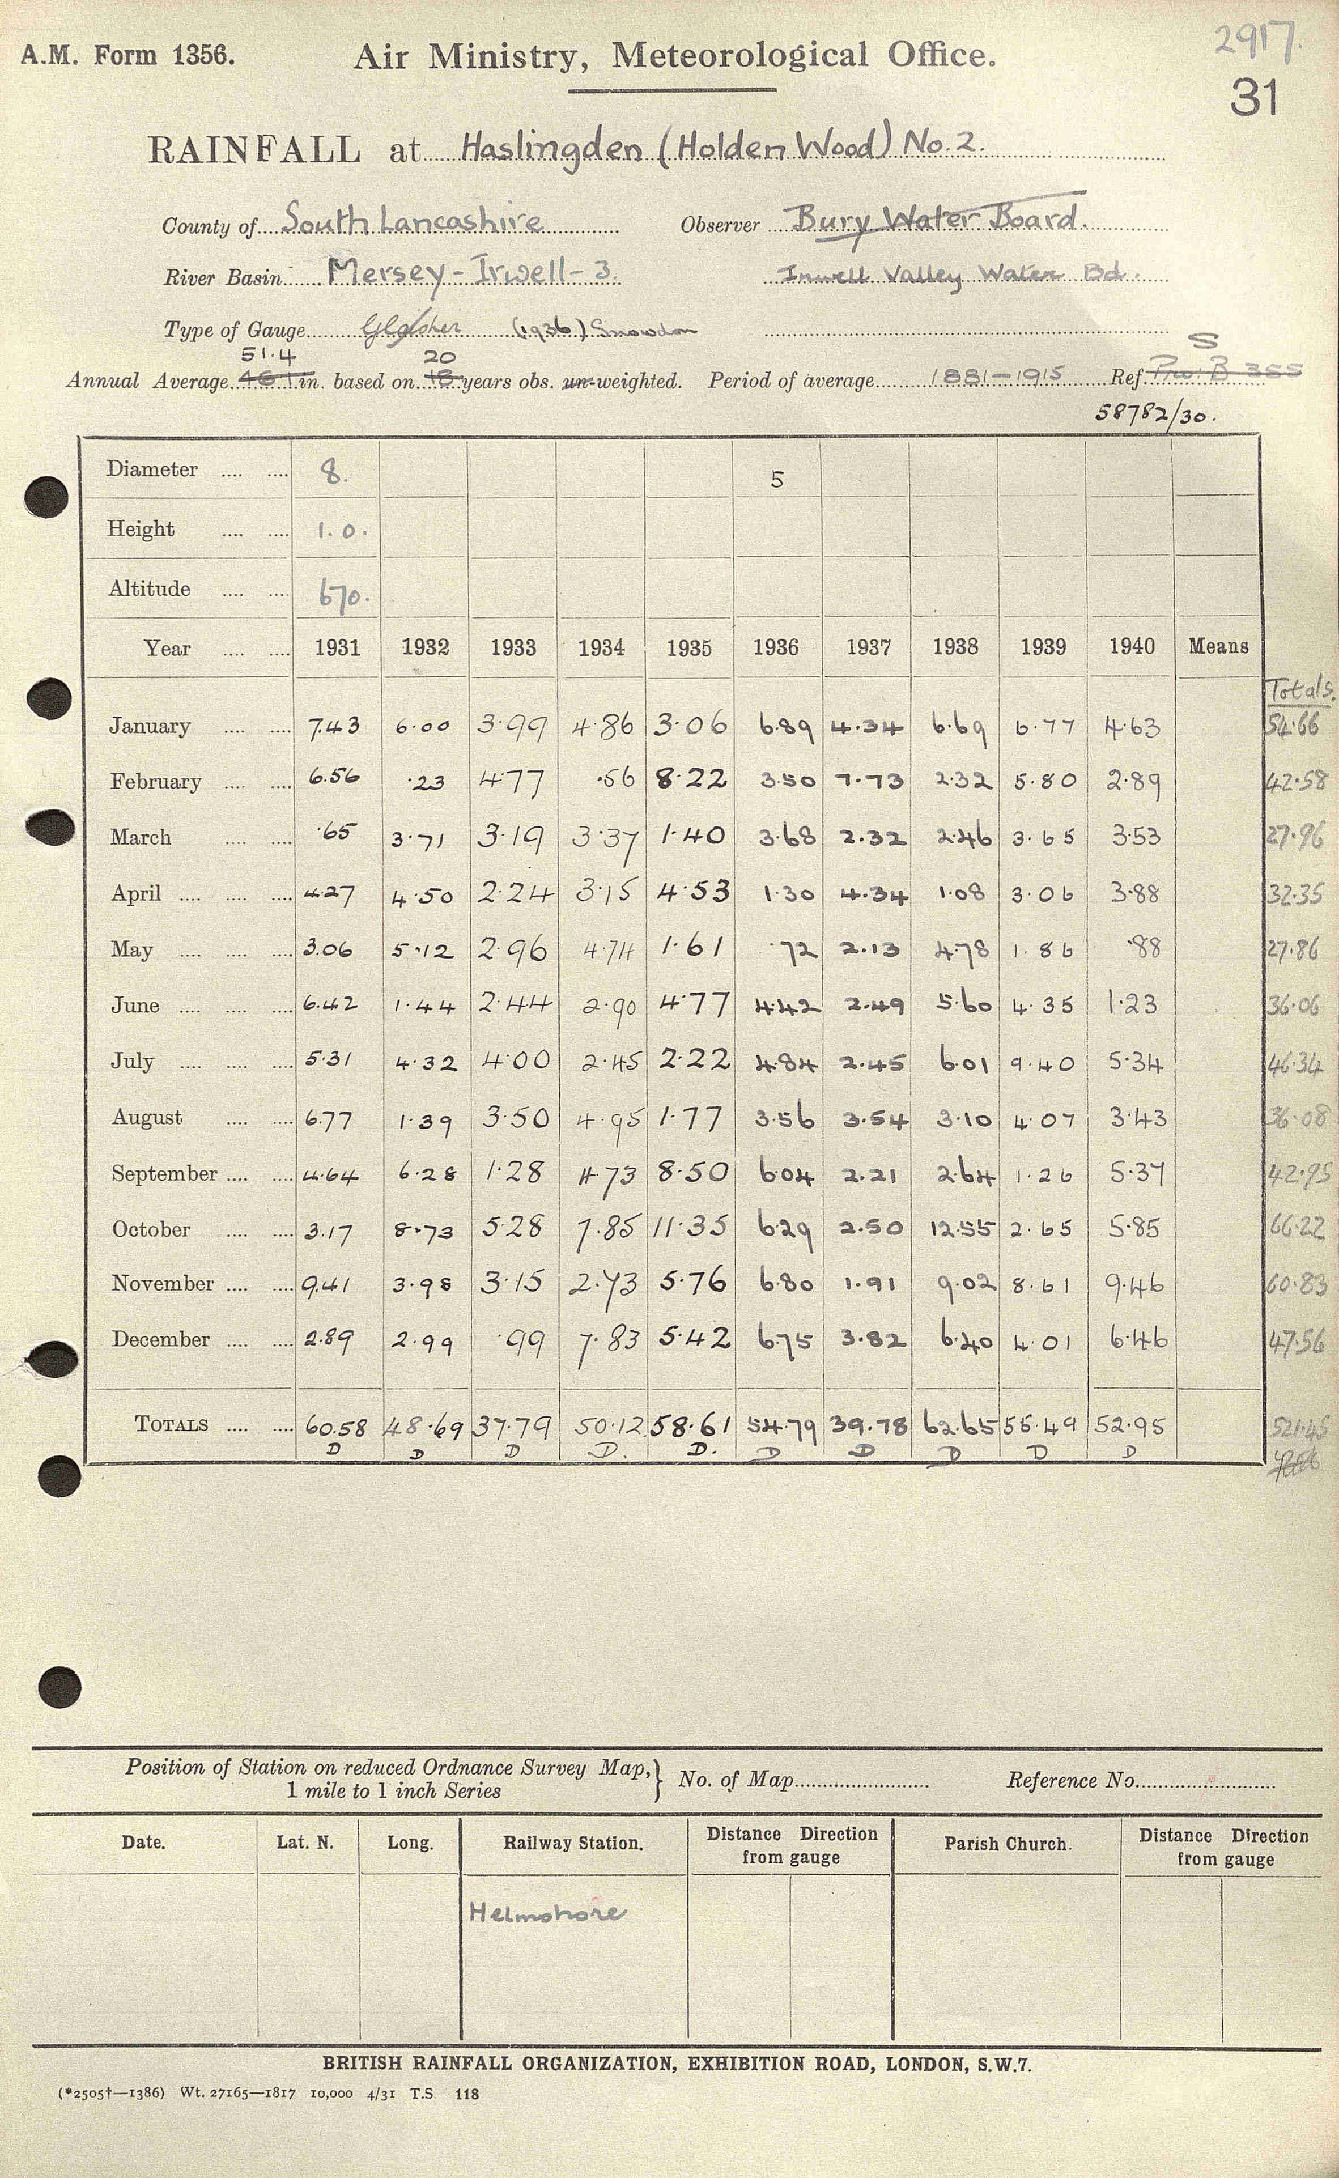 2917.
A.M. Form 1356. Air Ministry, Meteorological Office.
31
RAINFALL at Haslingden (Holden Wood) No. 2.
County of South Lancashire Observer Bury Water Board.
River Basin Mersey - Irwell - 3. Irwell Valley Water Bd.
Type of Gauge Glaisher (1936) Snowdon
51.4 20 S
Annual Average 46.1 in. based on 18 years obs. un-weighted. Period of average 1881-1915 Ref. Pro: B 355
58782/30.
Diameter 8. 5
Height 1.0.
Altitude 670.
Year 1931 1932 1933 1934 1935 1936 1937 1938 1939 1940 Means
Totals.
January 7.43 6.00 3.99 4.86 3.06 6.89 4.34 6.69 6.77 4.63 54.66
February 6.56 .23 4.77 .56 8.22 3.50 7.73 2.32 5.80 2.89 42.58
March .65 3.71 3.19 3.37 1.40 3.68 2.32 2.46 3.65 3.53 27.96
April 4.27 4.50 2.24 3.15 4.53 1.30 4.34 1.08 3.06 3.88 32.35
May 3.06 5.12 2.96 4.74 1.61 .72 2.13 4.78 1.86 .88 27.86
June 6.42 1.44 2.44 2.90 4.77 4.42 2.49 5.60 4.35 1.23 36.06
July 5.31 4.32 4.00 2.45 2.22 4.84 2.45 6.01 9.40 5.34 46.34
August 6.77 1.39 3.50 4.95 1.77 3.56 3.54 3.10 4.07 3.43 36.08
September 4.64 6.28 1.28 4.73 8.50 6.04 2.21 2.64 1.26 5.37 42.95
October 3.17 8.73 5.28 7.85 11.35 6.29 2.50 12.55 2.65 5.85 66.22
November 9.41 3.98 3.15 2.73 5.76 6.80 1.91 9.02 8.61 9.46 60.83
December 2.89 2.99 .99 7.83 5.42 6.75 3.82 6.40 4.01 6.46 47.56
TOTALS 60.58 48.69 37.79 50.12 58.61 54.79 39.78 62.65 55.49 52.95 521.45
D D D D. D. D D D D D
Position of Station on reduced Ordnance Survey Map,} No. of Map Reference No.
1 mile to 1 inch Series
Date. Lat. N. Long. Railway Station. Distance Direction from gauge Parish Church. Distance Direction from gauge
Helmshore
BRITISH RAINFALL ORGANIZATION, EXHIBITION ROAD, LONDON, S.W.7.
(*2505†—1386) Wt. 27165—1817 10,000 4/31 T.S. 118